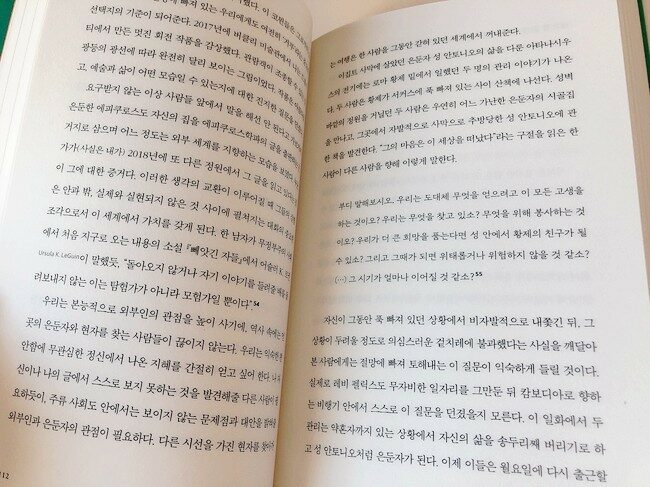 선택지의 기준이 되어준다. 2017년에 버클리 미술관에서
티에서 만든 멋진 회전 작품을 감상했다. 관람객이 조종할 수
광등의 광선에 따라 완전히 달리 보이는 그림이었다. 작품은
고, 예술과 삶이 어떤 모습일 수 있는지에 대한 진지한 질문
요구받지 않는 이상 사람들 앞에서 말을 해선 안 된다고
은둔한 에피쿠로스도 자신의 집을 에피쿠로스학파의 글을 출판하는
거지로 삼으며 어느 정도는 외부 세계를 지향하는 모습을 보였다.
가가(사실은 내가) 2018년에 또 다른 정원에서 그 글을 읽고 있다는
이 그에 대한 증거다. 이러한 생각의 교환이 이루어질 때 그들의
은 안과 밖, 실제와 실현되지 않은 것 사이에 펼쳐지는 대화의
조각으로서 이 세계에서 가치를 갖게 된다. 한 남자가 무정부주의
에서 처음 지구로 오는 내용의 소설 『빼앗긴 자들』에서 어슐러 K.
Ursula K. LeGuin이 말했듯, “돌아오지 않거나 자기 이야기를 들려줄 배를
려보내지 않는 이는 탐험가가 아니라 모험가일 뿐이다”54
우리는 본능적으로 외부인의 관점을 높이 사기에, 역사 속에는
곳의 은둔자와 현자를 찾는 사람들이 끊이지 않는다. 우리는 익숙한
안함에 무관심한 정신에서 나온 지혜를 간절히 얻고 싶어 한다. 나
신이나 나의 글에서 스스로 보지 못하는 것을 발견해줄 다른 사람이
요하듯이, 주류 사회도 안에서는 보이지 않는 문제점과 대안을 밝혀줄
외부인과 은둔자의 관점이 필요하다. 다른 시선을 가진 현자를 찾아가
112
는 여행은 한 사람을 그동안 갇혀 있던 세계에서 꺼내준다.
이집트 사막에 살았던 은둔자 성 안토니오의 삶을 다룬 아타나시우
스의 전기에는 로마 황제 밑에서 일했던 두 명의 관리 이야기가 나온
다. 두 사람은 황제가 서커스에 푹 빠져 있는 사이 산책에 나선다. 성벽
바깥의 정원을 거닐던 두 사람은 우연히 어느 가난한 은둔자의 시골집
을 만나고, 그곳에서 자발적으로 사막으로 추방당한 성 안토니오에 관
한 책을 발견한다. “그의 마음은 이 세상을 떠났다”라는 구절을 읽은 한
사람이 다른 사람을 향해 이렇게 말한다.
부디 말해보시오. 우리는 도대체 무엇을 얻으려고 이 모든 고생을
하는 것이오? 우리는 무엇을 찾고 있소? 무엇을 위해 봉사하는 것
이오? 우리가 더 큰 희망을 품는다면 성 안에서 황제의 친구가 될
수도? 그리고 그때가 되면 위태롭거나 위험하지 않을 것 같소?
(…) 그 시기가 얼마나 이어질 것 같소?55
자신이 그동안 푹 빠져 있던 상황에서 비자발적으로 내쫓긴 뒤, 그
상황이 두려울 정도로 의심스러운 겉치레에 불과했다는 사실을 깨달아
본 사람에게는 절망에 빠져 토해내는 이 질문이 익숙하게 들릴 것이다.
실제로 레비 펠릭스도 무자비한 일자리를 그만둔 뒤 캄보디아로 향하
는 비행기 안에서 스스로 이 질문을 던졌을지 모른다. 이 일화에서 두
관리는 약혼자까지 있는 상황에서 자신의 삶을 송두리째 버리기로 하
고 성 안토니오처럼 은둔자가 된다. 이제 이들은 월요일에 다시 출근할